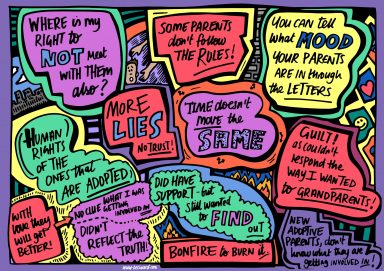 WHERE is my
RIGHT to
NOT meet
WITH THEM
also?
SOME PARENTS
don't follow
THE RULES!
YOU CAN tell
what MOOD
YOUR PARENTS
ARE IN through
the LETTERS
MORE
LIES
NO TRUST!
TIME doesn't
move the
SAME
GUILT!
as couldn't
respond the
WAY I WANTED
to GRANDPARENTS!
HUMAN
RIGHTS
OF THE
ONES that
ARE ADOPTED
WITH
love they
will get
BETTER!
WHAT I WAS
NO CLUE GETTING INVOLVED IN
DIDN'T
REFLECT the
TRUTH!
DID HAVE
SUPPORT - but
still wanted
to FIND
OUT
BONFIRE to BURN it
NEW
ADOPTIVE
PARENTS, don't
know what they are
getting INVOLVED IN